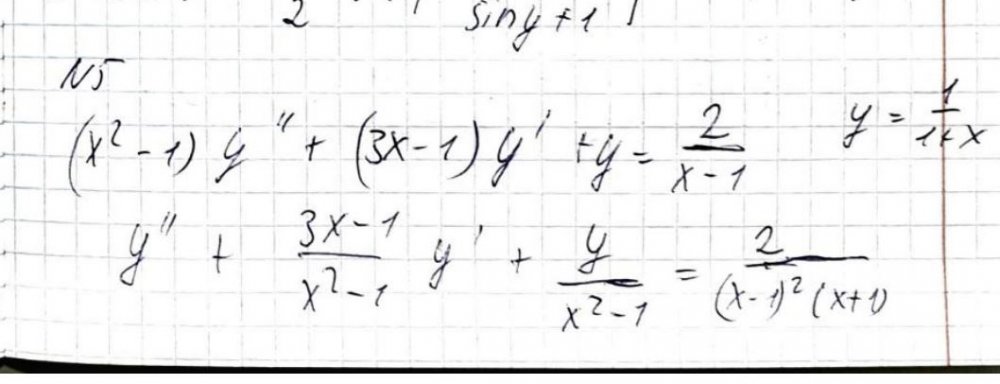 2 sin y + 1
N5
(x² - 1) y'' + (3x - 1) y' + y = 2/(x - 1)    y = 1/(1 + x)
y'' + (3x - 1)/(x² - 1) y' + y/(x² - 1) = 2/((x - 1)² (x + 1))